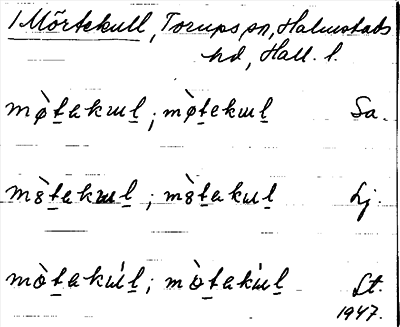 1 Mörtekull, Torups sn, Halmstads
hd, Hall. l.
mø̀t̲akɯl̲; mø̀t̲ekɯl̲ Sa.
mȣ̀t̲akɯl̲; mȣ̀t̲akɯl̲ Lj.
mòt̲akɯ́l̲; mòt̲akɯ́l̲ St.
1947.